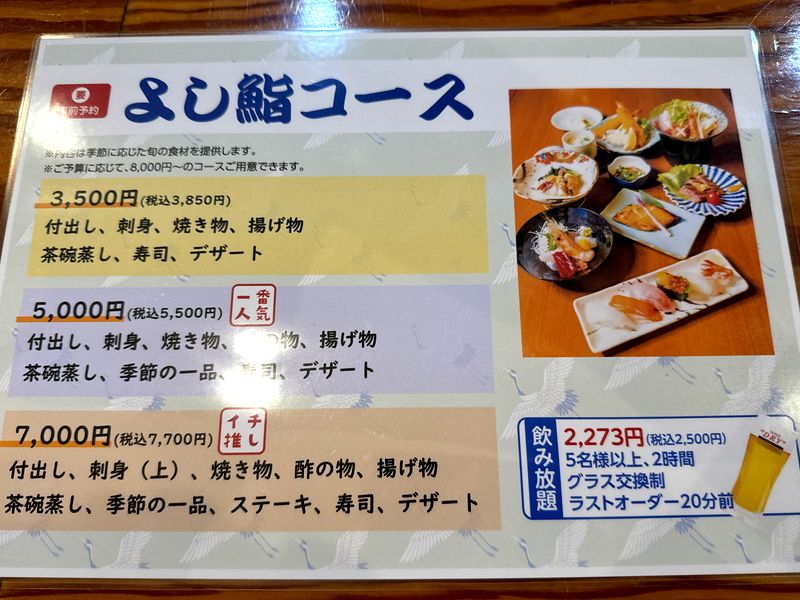 要
事前予約
よし鮨コース
※内容は季節に応じた旬の食材を提供します。
※ご予算に応じて、8,000円～のコースご用意できます。
3,500円(税込3,850円)
付出し、刺身、焼き物、揚げ物
茶碗蒸し、寿司、デザート
5,000円(税込5,500円)
一番人気
付出し、刺身、焼き物、の物、揚げ物
茶碗蒸し、季節の一品、寿司、デザート
7,000円(税込7,700円)
イチ推し
付出し、刺身（上）、焼き物、酢の物、揚げ物
茶碗蒸し、季節の一品、ステーキ、寿司、デザート
飲み放題
2,273円(税込2,500円)
5名様以上、2時間
グラス交換制
ラストオーダー20分前
DRY